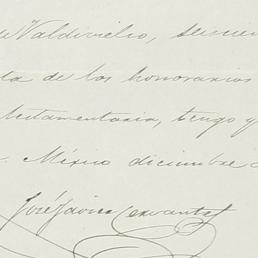 Valdivielso,
ta de los honorarios
testamentaria, tengo y
México diciembre
José Javier Cervantes